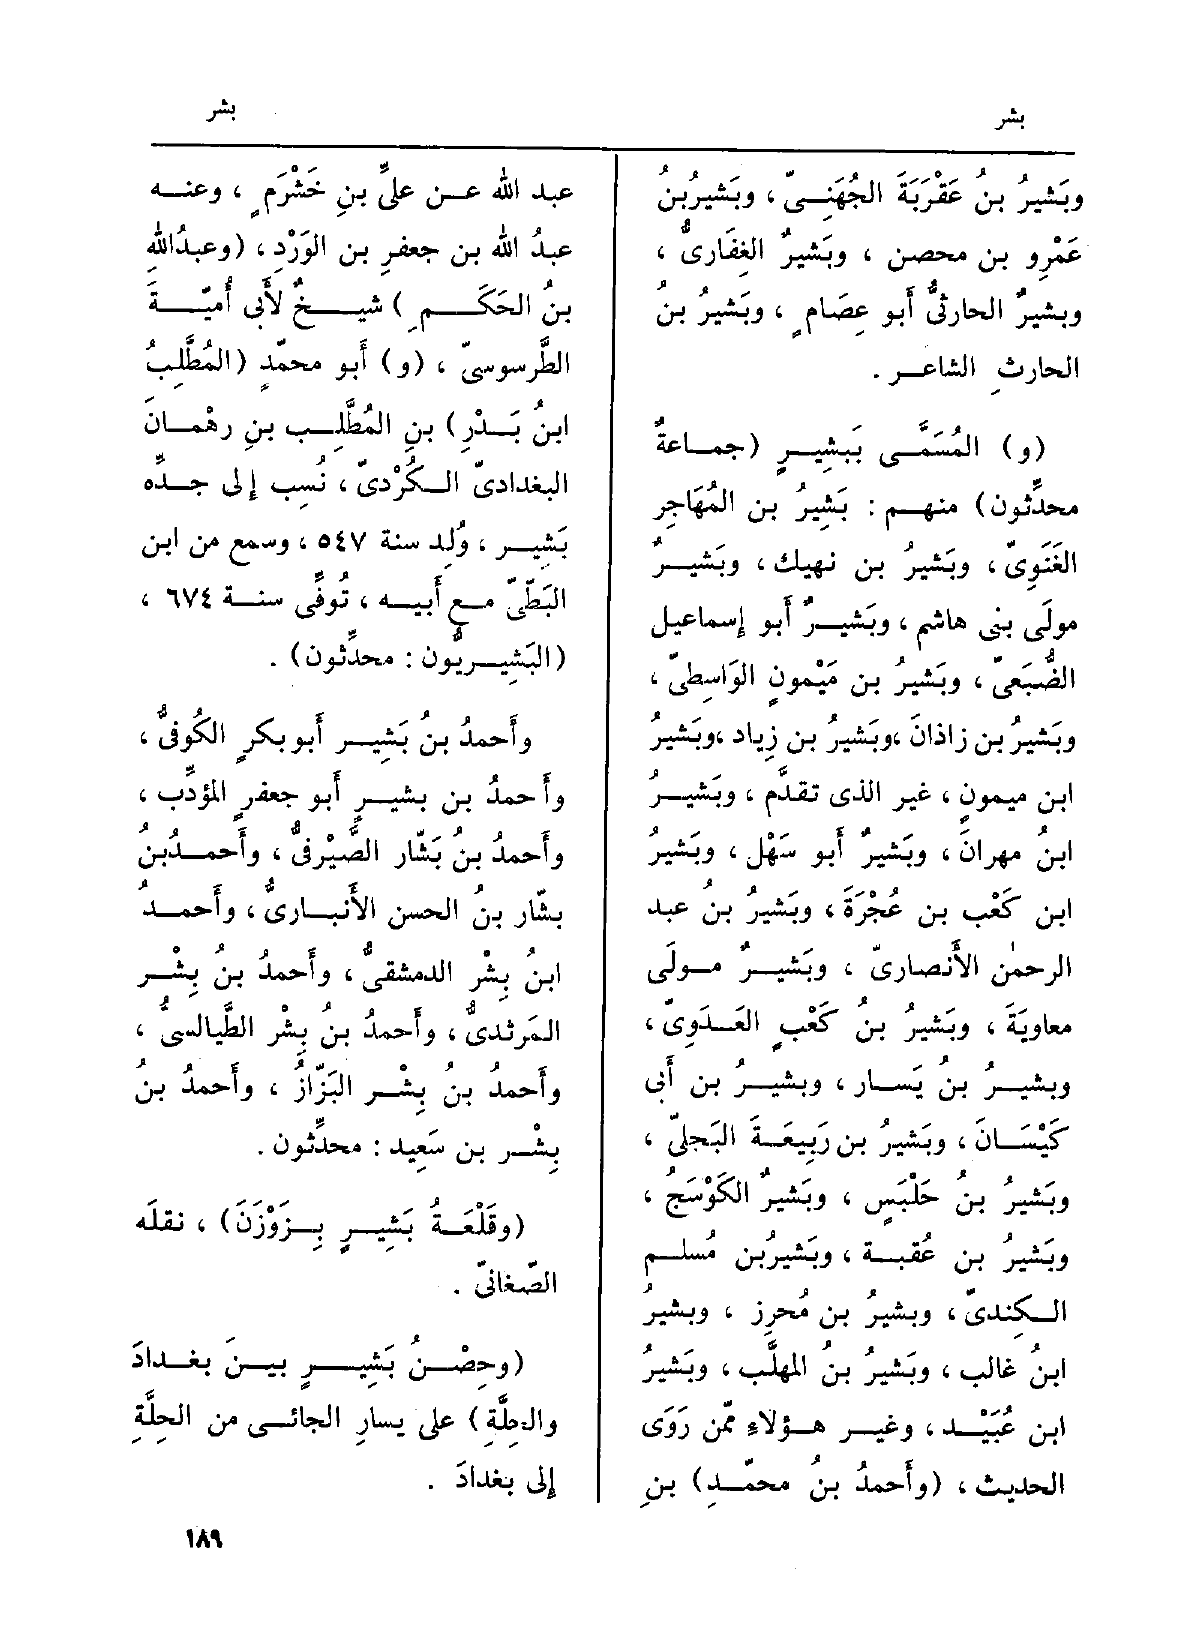 بشر
بشر
وبَشيرُ بنُ عَقْرَبَةَ الجُهَنِىّ ، وبَشيرُ بنُ
عَمْرِو بن محصن ، وبَشيرٌ الغِفَارىُّ ،
وبشيرٌ الحارثىُّ أَبو عِصَامٍ ، وبَشيرُ بنُ
الحارثِ الشاعر .
(و) المُسَمَّى بِبَشِيرٍ (جماعةٌ
محدِّثون) منهم : بَشِيرُ بن المُهَاجِرِ
الغَنَوِىّ ، وبَشيرُ بن نهيك ، وبَشيرٌ
مولَى بنى هاشم ، وبَشيرٌ أَبو إِسماعيل
الضُّبَعىُّ ، وبَشيرُ بن مَيْمونٍ الوَاسِطىّ ،
وبَشيرُ بن زاذانَ ، وبَشيرُ بن زِياد ، وبَشيرُ
ابن ميمونٍ ، غير الذى تقدَّم ، وبَشيرُ
ابنُ مهرانَ ، وبَشيرٌ أَبو سَهْل ، وبَشيرُ
ابن كَعْب بن عُجْرَةَ ، وبَشيرُ بنُ عبد
الرحمٰن الأَنصارىّ ، وبَشيرٌ مولَى
معاويَةَ ، وبَشيرُ بنُ كَعْبٍ العَدَوِىّ ،
وبشيرُ بنُ يَسار ، وبشيرُ بن أَبى
كَيْسَانَ ، وبَشيرُ بن رَبِيعَةَ البَجلىّ ،
وبَشيرُ بنُ حَلْبَسٍ ، وبَشيرٌ الكَوْسَجُ ،
وبَشيرُ بن عُقبة ، وبَشيرُ بن مُسلم
الكِندىّ ، وبشيرُ بن مُحرِز ، وبشيرُ
ابنُ غالب ، وبَشيرُ بنُ المهلَّب ، وبَشيرُ
ابن عُبَيْد ، وغير هؤلاءِ ممّن رَوَى
الحديث ، (وأَحمدُ بنُ محمّدِ) بنِ
عبد اللّه عن علىِّ بنِ خَشْرَمٍ ، وعنه
عبدُ اللّه بن جعفرِ بن الوَرْدِ ، (وعبدُ اللّهِ
بنُ الحَكَمِ) شيخٌ لأَبى أُميّةَ
الطَّرسوسىّ ، (و) أَبو محمّدٍ (المُطَّلِبُ
ابنُ بَدْرِ) بنِ المُطَّلِب بنِ رهْمانَ
البغدادىّ الكُرْدىّ ، نُسِب إِلى جدِّه
بَشِير ، وُلِد سنة ٥٤٧ ، وسمع من ابن
البَطّىّ مع أَبيه ، تُوفِّى سنة ٦٧٤ ،
(البَشِيريُّون : محدِّثون) .
وأَحمدُ بنُ بَشِير أَبو بكرٍ الكُوفىُّ ،
وأَحمدُ بن بشيرٍ أَبو جعفرٍ المؤدِّب ،
وأَحمدُ بنُ بَشّار الصَّيْرفىُّ ، وأَحمدُ بنُ
بشّار بنُ الحسن الأَنبارىُّ ، وأَحمدُ
ابنُ بِشْرٍ الدمشقىُّ ، وأَحمدُ بنُ بِشْر
المَرثدىُّ ، وأَحمدُ بنُ بِشْر الطَّيالسىُّ ،
وأَحمدُ بنُ بِشْر البَزّازُ ، وأَحمدُ بنُ
بِشْر بن سَعِيد : محدِّثون .
(وقَلْعَةُ بَشِيرٍ بِزَوْزَنَ) ، نقلَه
الصّغانىّ .
(وحِصْنُ بَشِيرٍ بينَ بغدادَ
والحِلَّةِ) على يسارِ الجائى من الحِلَّةِ
إِلى بغدادَ .
١٨٩